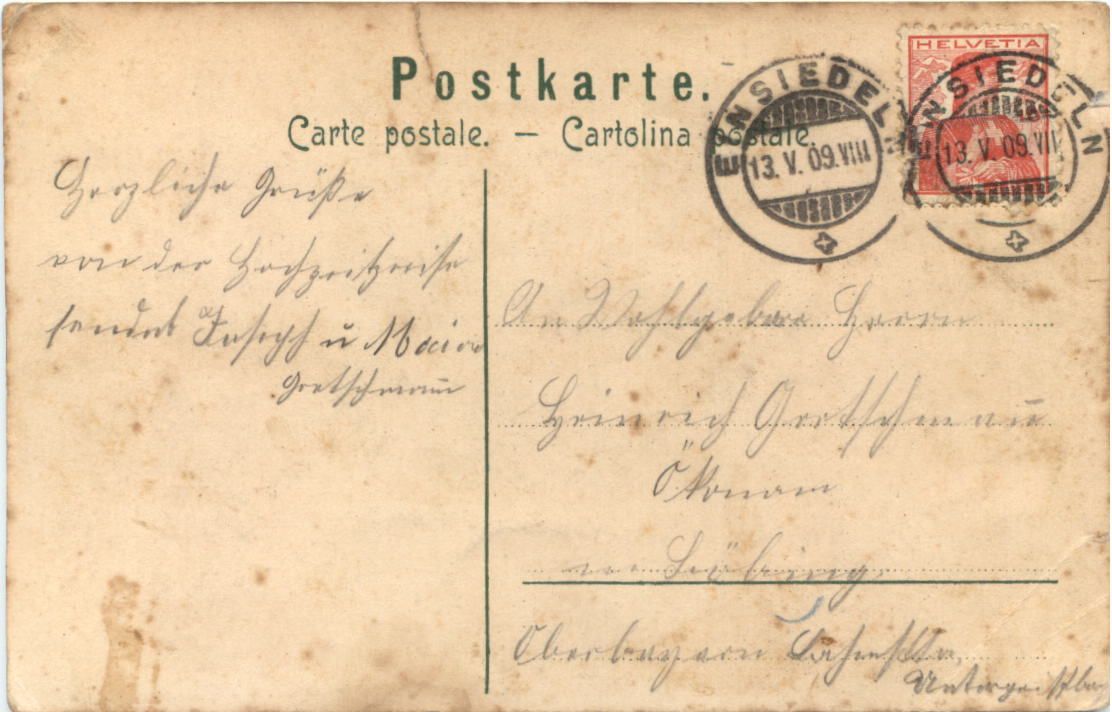 Postkarte.
Carte postale. – Cartolina postale.
HELVETIA
EINSIEDELN
13. V. 09. VIII
EINSIEDELN
13. V. 09. VII
Herzliche Grüße
von der Hochzeitsreise
sendet Joseph u Maria
Gretschmann
An Wohlgeboren Herrn
Heinrich Gretschmann
Ökonom
in Böbing
Oberbayern